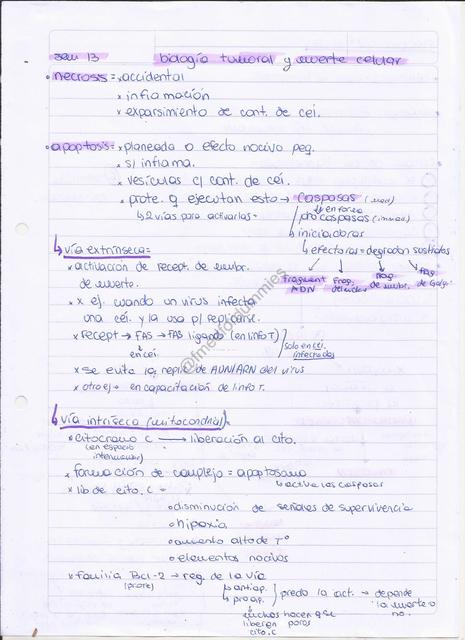 sem 13 biología tumoral y muerte celular
• necrosis = x accidental
x inflamación
x esparsimiento de cont. de cél.
• apoptosis = x planeada o efecto nocivo peq.
x s/ inflama.
x vesículas c/ cont. de cél.
x prote. q ejecutan esto → caspasas
↓ en forma
↳ 2 vías para activarlas = procaspasas (inact)
iniciadoras
↳ efectoras = degradan sustratos
↳ vía extrínseca =
fragment ADN frag. frag. de membr. frag. de Golgi
x activación de recept. de membr.
de muerte.
x x ej. cuando un virus infecta
una cél. y la usa p/ replicarse.
@fmedfordummies
x recept → FAS → FAS ligando (en linfo T) solo en cél. infectadas
en cél.
x se evita la replic de ADN/ARN del virus
x otro ej → en capacitación de linfo T.
↳ vía intríseca (mitocondrial) =
x citocromo c → liberación al cito.
(en espacio
intermembr)
x formación de complejo = apoptosoma
↳ activa las caspasas
x lib de cito. c =
• disminución de señales de supervivencia
• hipoxia
• aumento alto de T°
• elementos nocivos
x familia Bcl-2 → reg. de la vía
(prote) ↳ antiap. predo la act. → depende
↳ proap. la muerte o
↳ muchos hacen q se no.
liberen poros
cito. c